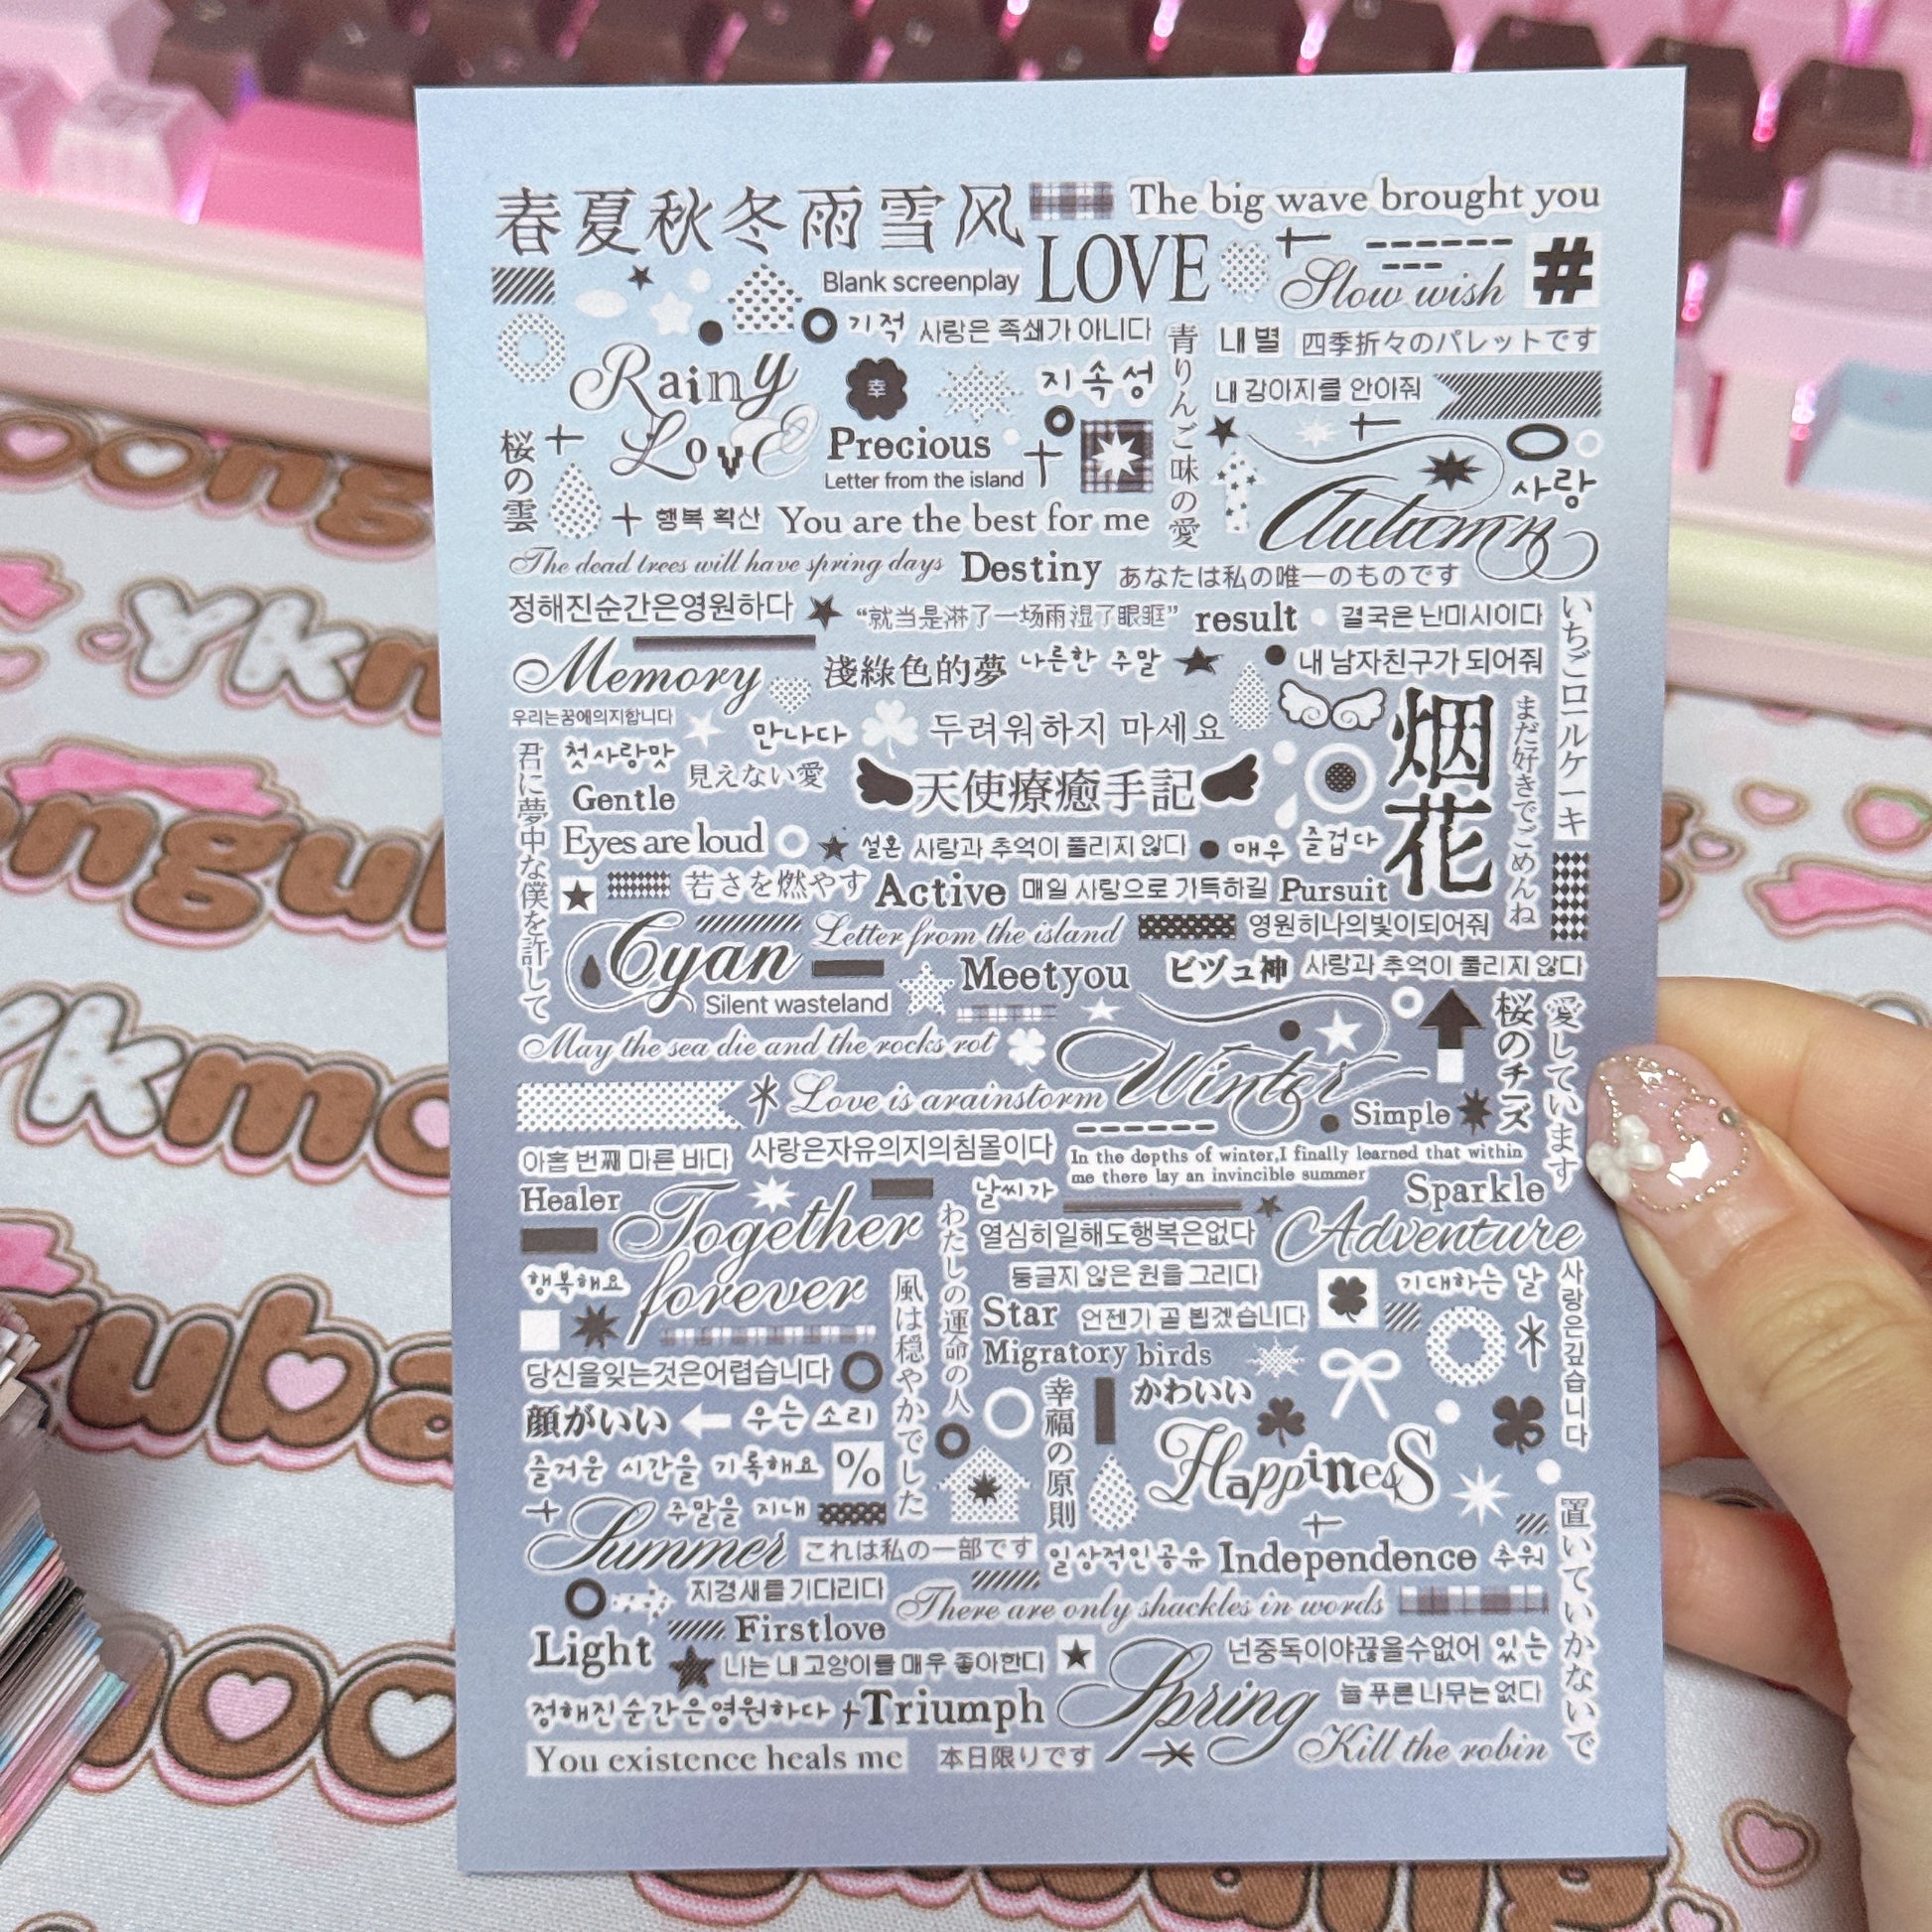 春夏秋冬雨雪风
The big wave brought you
Blank screenplay
LOVE
Slow wish
#
기적
사랑은 족쇄가 아니다
青りんご味の愛
내 별
四季折々のパレットです
Rainy
LovE
幸
지속성
내 강아지를 안아줘
桜の雲
Precious
Letter from the island
사랑
행복 확산
You are the best for me
Autumn
The dead trees will have spring days
Destiny
あなたは私の唯一のものです
정해진순간은영원하다
“就当是淋了一场雨湿了眼眶”
result
결국은 난미시이다
いちごロールケーキ
Memory
淺綠色的夢
나른한 주말
내 남자친구가 되어줘
우리는꿈에의지합니다
만나다
두려워하지 마세요
烟花
まだ好きでごめんね
君に夢中な僕を許して
첫사랑맛
見えない愛
Gentle
天使療癒手記
Eyes are loud
설혼
사랑과 추억이 풀리지 않다
매우 즐겁다
若さを燃やす
Active
매일 사랑으로 가득하길
Pursuit
Cyan
Letter from the island
영원히나의빛이되어줘
Meetyou
ビヅュ神
사랑과 추억이 풀리지 않다
Silent wasteland
桜のチーズ
愛しています
May the sea die and the rocks rot
Winter
Love is arainstorm
Simple
아홉 번째 마른 바다
사랑은자유의지의침몰이다
In the depths of winter,I finally learned that within
me there lay an invincible summer
Healer
Together
forever
わたしの運命の人
날씨가
Sparkle
열심히일해도행복은없다
Adventure
행복해요
風は穏やかでした
둥글지 않은 원을 그리다
기대하는 날
사랑은깊습니다
Star
언젠가 곧 뵙겠습니다
Migratory birds
당신을잊는것은어렵습니다
幸福の原則
かわいい
顔がいい
우는 소리
Happiness
즐거운 시간을 기록해요
%
置いていかないで
주말을 지내
Summer
これは私の一部です
일상적인공유
Independence
추워
지경새를기다리다
There are only shackles in words
Light
Firstlove
나는 내 고양이를 매우 좋아한다
Spring
넌중독이야끊을수없어
있는
정해진순간은영원하다
Triumph
늘 푸른 나무는 없다
You existence heals me
本日限りです
Kill the robin